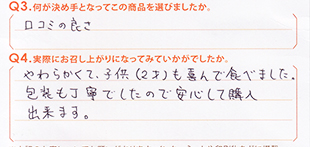 Q3.何が決め手となってこの商品を選びましたか。
口コミの良さ
Q4.実際にお召し上がりになってみていかがでしたか。
やわらかくて、子供(2才)も喜んで食べました。
包装も丁寧でしたので安心して購入
出来ます。